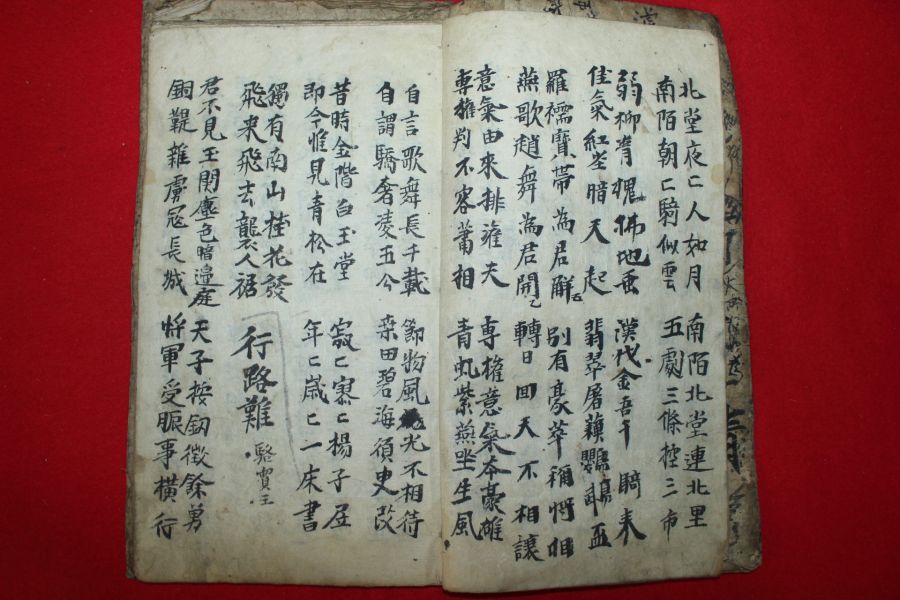 北堂夜〻人如月 南陌北堂連北里
南陌朝〻騎似雲 五劇三條控三市
弱柳青槐佛地垂 漢代金吾千騎来
佳氣紅塵暗天起 翡翠屠蘓鸚鵡盃
羅襦寶帶為君解 別有豪華稱將相
燕歌趙舞為君開 轉日回天不相讓
意氣由來排灌夫 專權意氣本豪雄
專權判不容蕭相 青虬紫燕坐生風
自言歌舞長千載 節物風光不相待
自謂驕奢凌五今 桒田碧海須史改
昔時金階白玉堂 寂〻寥〻揚子居
即今惟見青松在 年〻歲〻一床書
獨有南山桂花發
飛来飛去襲人裾
行路難 駱賓王
君不見玉関塵色暗邉庭 天子按釼徵餘勇
銅鞮雜虜冦長城 將軍受脤事橫行